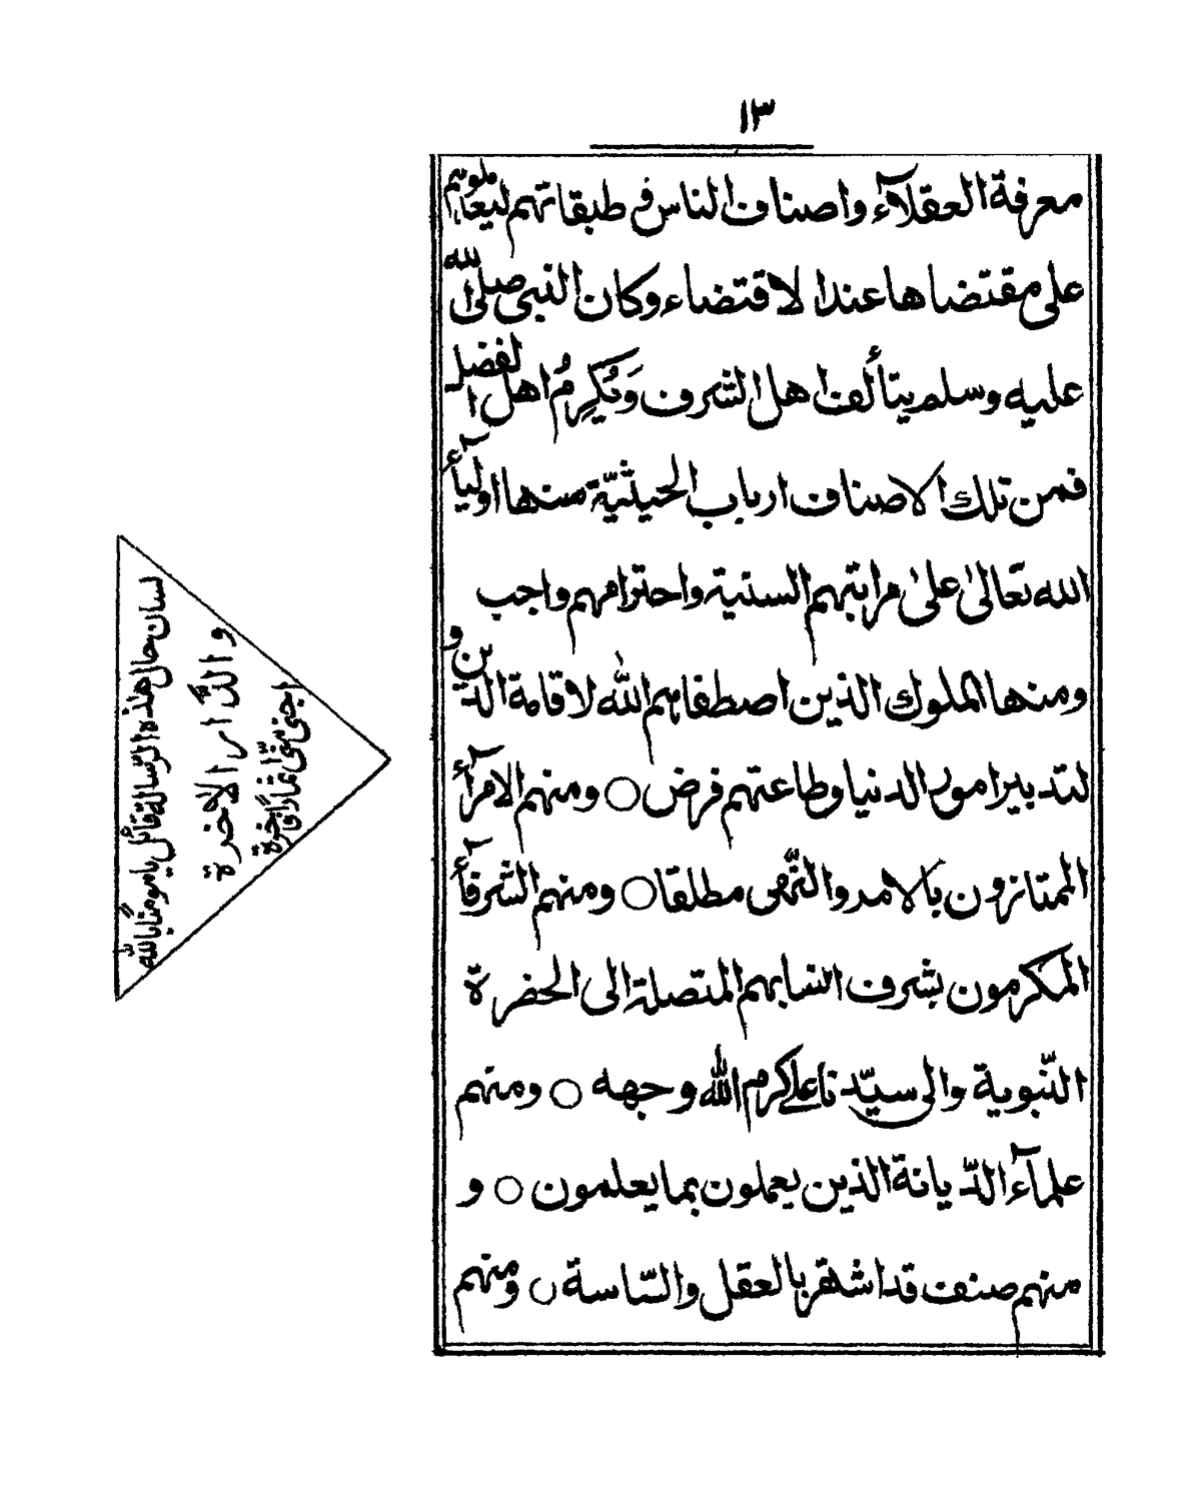 ١٣
معرفة العقلآء واصناف الناس فى طبقاتهم ليعاملوهم
على مقتضاها عند الاقتضاء وكان النبى صلى الله
عليه وسلم يتألف اهل الشرف وَيُكرِمُ اهل الفضل
فمن تلك الاصناف ارباب الحيثيّة منها اوليآء
الله تعالىٰ علىٰ مراتبهم السنية واحترامهم واجب
ومنها الملوك الذين اصطفاهم الله لاقامة الدّين و
لتدبير امور الدنيا وطاعتهم فرض ○ ومنهم الامرآء
الممتازون بالامر والنّهى مطلقا ○ ومنهم الشرفآء
المكرمون بشرف انسابهم المتصلة الى الحضرة
النّبوية والى سيّدنا على كرم الله وجهه ○ ومنهم
علمآء الدّيانة الذين يعملون بما يعلمون ○ و
منهم صنف قد اشتهر بالعقل والسّياسة ○ ومنهم
لسان حال هٰذه الرّسالة قائل يا مومنًا بالله
و الدّار الاخرة
اجنى منّى ثمارًا فاخرة